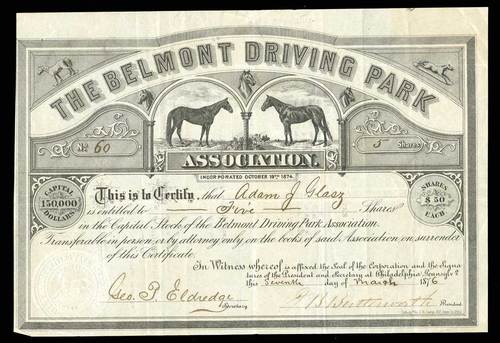 THE BELMONT DRIVING PARK
No 60
5 Shares
ASSOCIATION.
INCORPORATED OCTOBER 19TH 1874.
CAPITAL
150,000
DOLLARS
SHARES
$50
EACH
This is to Certify, that Adam J Glasz
is entitled to Five Shares
in the Capital Stock of the Belmont Driving Park Association.
Transferable in person, or by attorney only on the books of said Association on surrender
of this Certificate.
In Witness whereof is affixed the Seal of the Corporation and the Signa-
tures of the President and Secretary at Philadelphia Pennsylva
this Seventh day of March 1876
Geo. P. Eldredge
Secretary
Butterworth
President